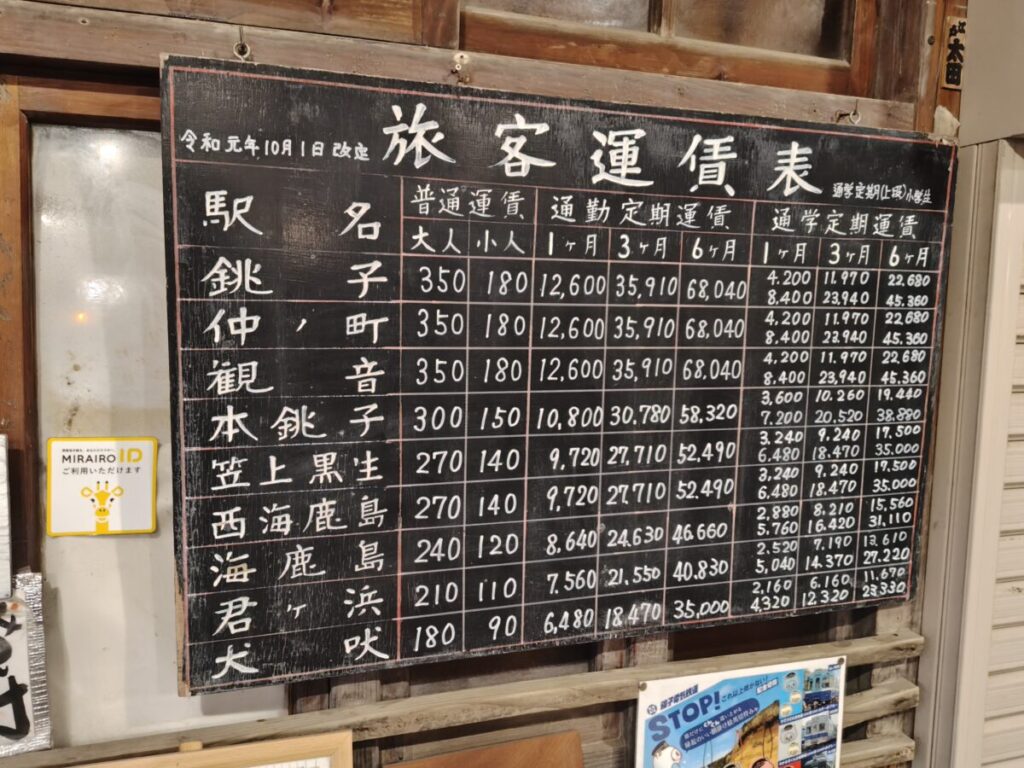 令和元年10月1日 改定 旅客運賃表 通学定期(上段)小学生
駅名 普通運賃 通勤定期運賃 通学定期運賃
大人 小人 1ヶ月 3ヶ月 6ヶ月 1ヶ月 3ヶ月 6ヶ月
銚子 350 180 12,600 35,910 68,040 4,200 11.970 22,680
8,400 23,940 45,360
仲ノ町 350 180 12,600 35,910 68,040 4,200 11.970 22,680
8,400 23,940 45,360
観音 350 180 12,600 35,910 68,040 4,200 11,970 22,680
8,400 23,940 45,360
本銚子 300 150 10,800 30.780 58,320 3,600 10.260 19,440
7,200 20,520 38,880
笠上黒生 270 140 9,720 27,710 52,490 3,240 9.240 17,500
6,480 18,470 35,000
西海鹿島 270 140 9,720 27,710 52,490 3,240 9,240 17,500
6,480 18,470 35,000
海鹿島 240 120 8,640 24,630 46,660 2,880 8,210 15,560
5,760 16,420 31,110
君ヶ浜 210 110 7,560 21,550 40,830 2,520 7,190 13,610
5,040 14,370 27,220
犬吠 180 90 6,480 18,470 35,000 2,160 6,160 11,670
4,320 12,320 23,330
太田
MIRAIRO ID
ご利用いただけます
銚子電気鉄道
STOP!
これ以上